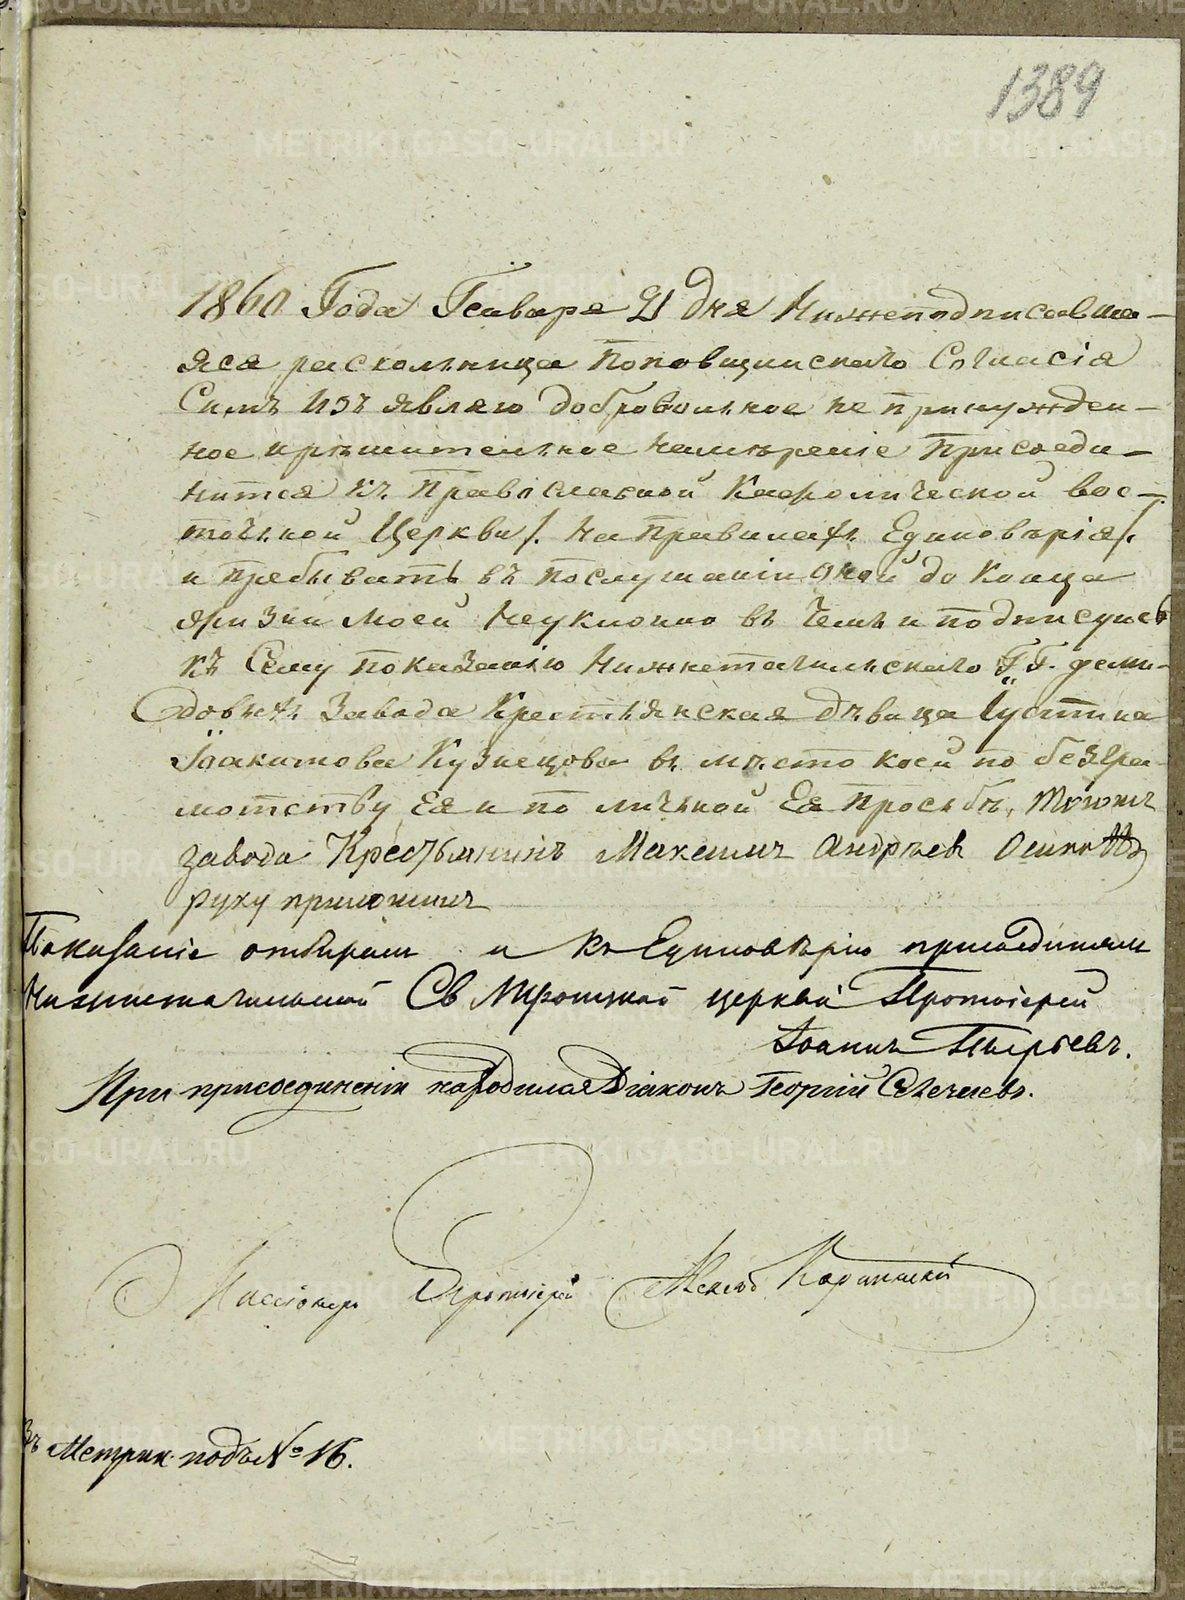 1389
1860 Года Генваря 21 дня Нижеподписавша-
яся раскольница Поповщинскаго Согласія
Симъ изъявляю добровольное не принужден-
ное и решительное намѣреніе Присоеди-
нится къ Православной Каѳолической вос-
точной Церкви /. на Правилахъ Единовѣрія /.
и пребывать въ послушаніи оной до Конца
жизни Моей Неуклонно въ Чемъ и подписуюсь
къ Сему показанію Нижнетагильскаго Г.Г. деми-
довыхъ Завода Крестьянская дѣвица Іустина
Кузнецова въ мѣсто коей по безгра-
мотству Ея и по личьной Ея Просьбѣ, тогожъ
завода Крестьянинъ Максимъ Андрѣевъ
руку приложилъ
Показаніе отбиралъ и къ Единовѣрію присоединялъ
Нижнетагильской Св Троицкой церкви Протоіерей
Іоаннъ Пырьевъ.
При присоединеніи находился Діаконъ Георгій
Миссіонеръ Протоіерей
Въ Метрик. подъ № 16.
METRIKI.GASO-URAL.RU